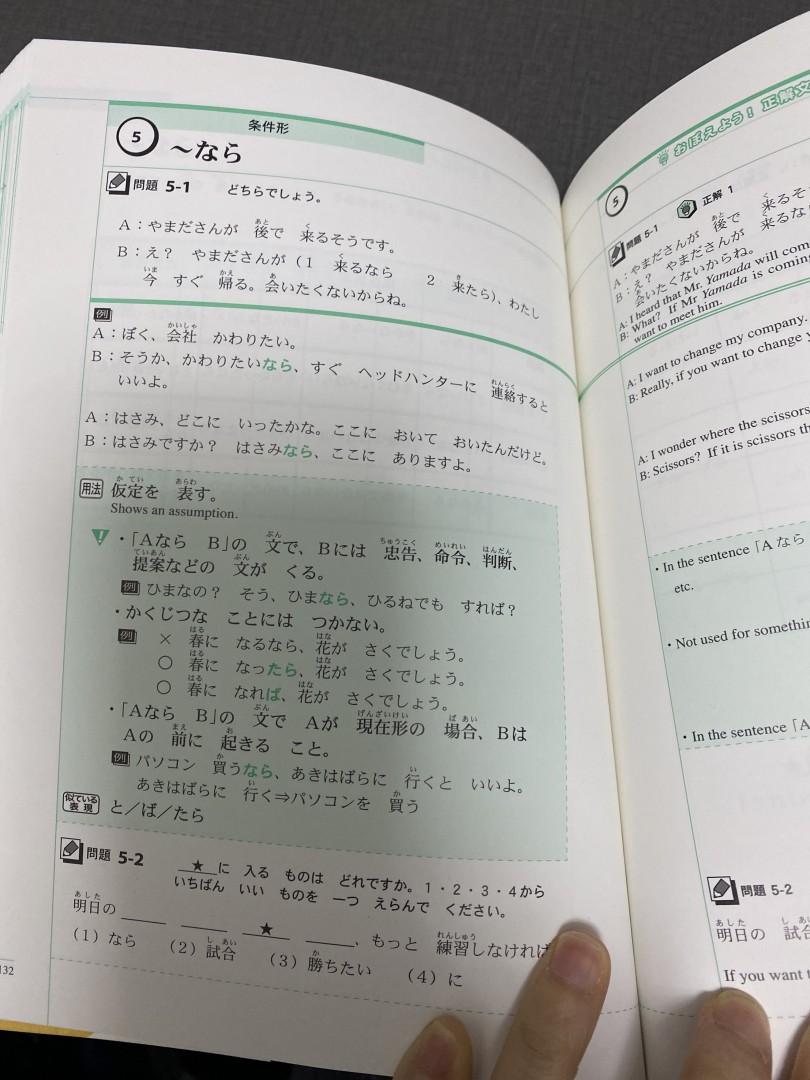 条件形
5 〜なら
問題 5-1 どちらでしょう。
A：やまださんが 後で 来るそうです。
B：え？ やまださんが（1 来るなら 2 来たら）、わたし
今 すぐ 帰る。会いたくないからね。
例
A：ぼく、会社 かわりたい。
B：そうか、かわりたいなら、すぐ ヘッドハンターに 連絡すると
いいよ。
A：はさみ、どこに いったかな。ここに おいて おいたんだけど。
B：はさみですか？ はさみなら、ここに ありますよ。
用法 仮定を 表す。
Shows an assumption.
・「Aなら B」の 文で、Bには 忠告、命令、判断、
提案などの 文が くる。
例 ひまなの？ そう、ひまなら、ひるねでも すれば？
・かくじつな ことには つかない。
例 × 春に なるなら、花が さくでしょう。
○ 春に なったら、花が さくでしょう。
○ 春に なれば、花が さくでしょう。
・「Aなら B」の 文で Aが 現在形の 場合、Bは
Aの 前に 起きる こと。
例 パソコン 買うなら、あきはばらに 行くと いいよ。
あきはばらに 行く⇒パソコンを 買う
似ている表現 と／ば／たら
問題 5-2 ★に 入る ものは どれですか。1・2・3・4から
いちばん いい ものを 一つ えらんで ください。
明日の ____ ____ ★ ____、もっと 練習しなければ
（1）なら （2）試合 （3）勝ちたい （4）に
132
おぼえよう！ 正解文
5
問題 5-1 正解 1
A：やまださんが 後で 来るそ
B：え？ やまださんが 来るな
会いたくないからね。
A: I heard that Mr. Yamada will com
B: What? If Mr Yamada is coming
want to meet him.
A: I want to change my company.
B: Really, if you want to change y
A: I wonder where the scissors
B: Scissors? If it is scissors th
・In the sentence「A なら
etc.
・Not used for somethin
・In the sentence「A
問題 5-2
明日の 試合
If you want t